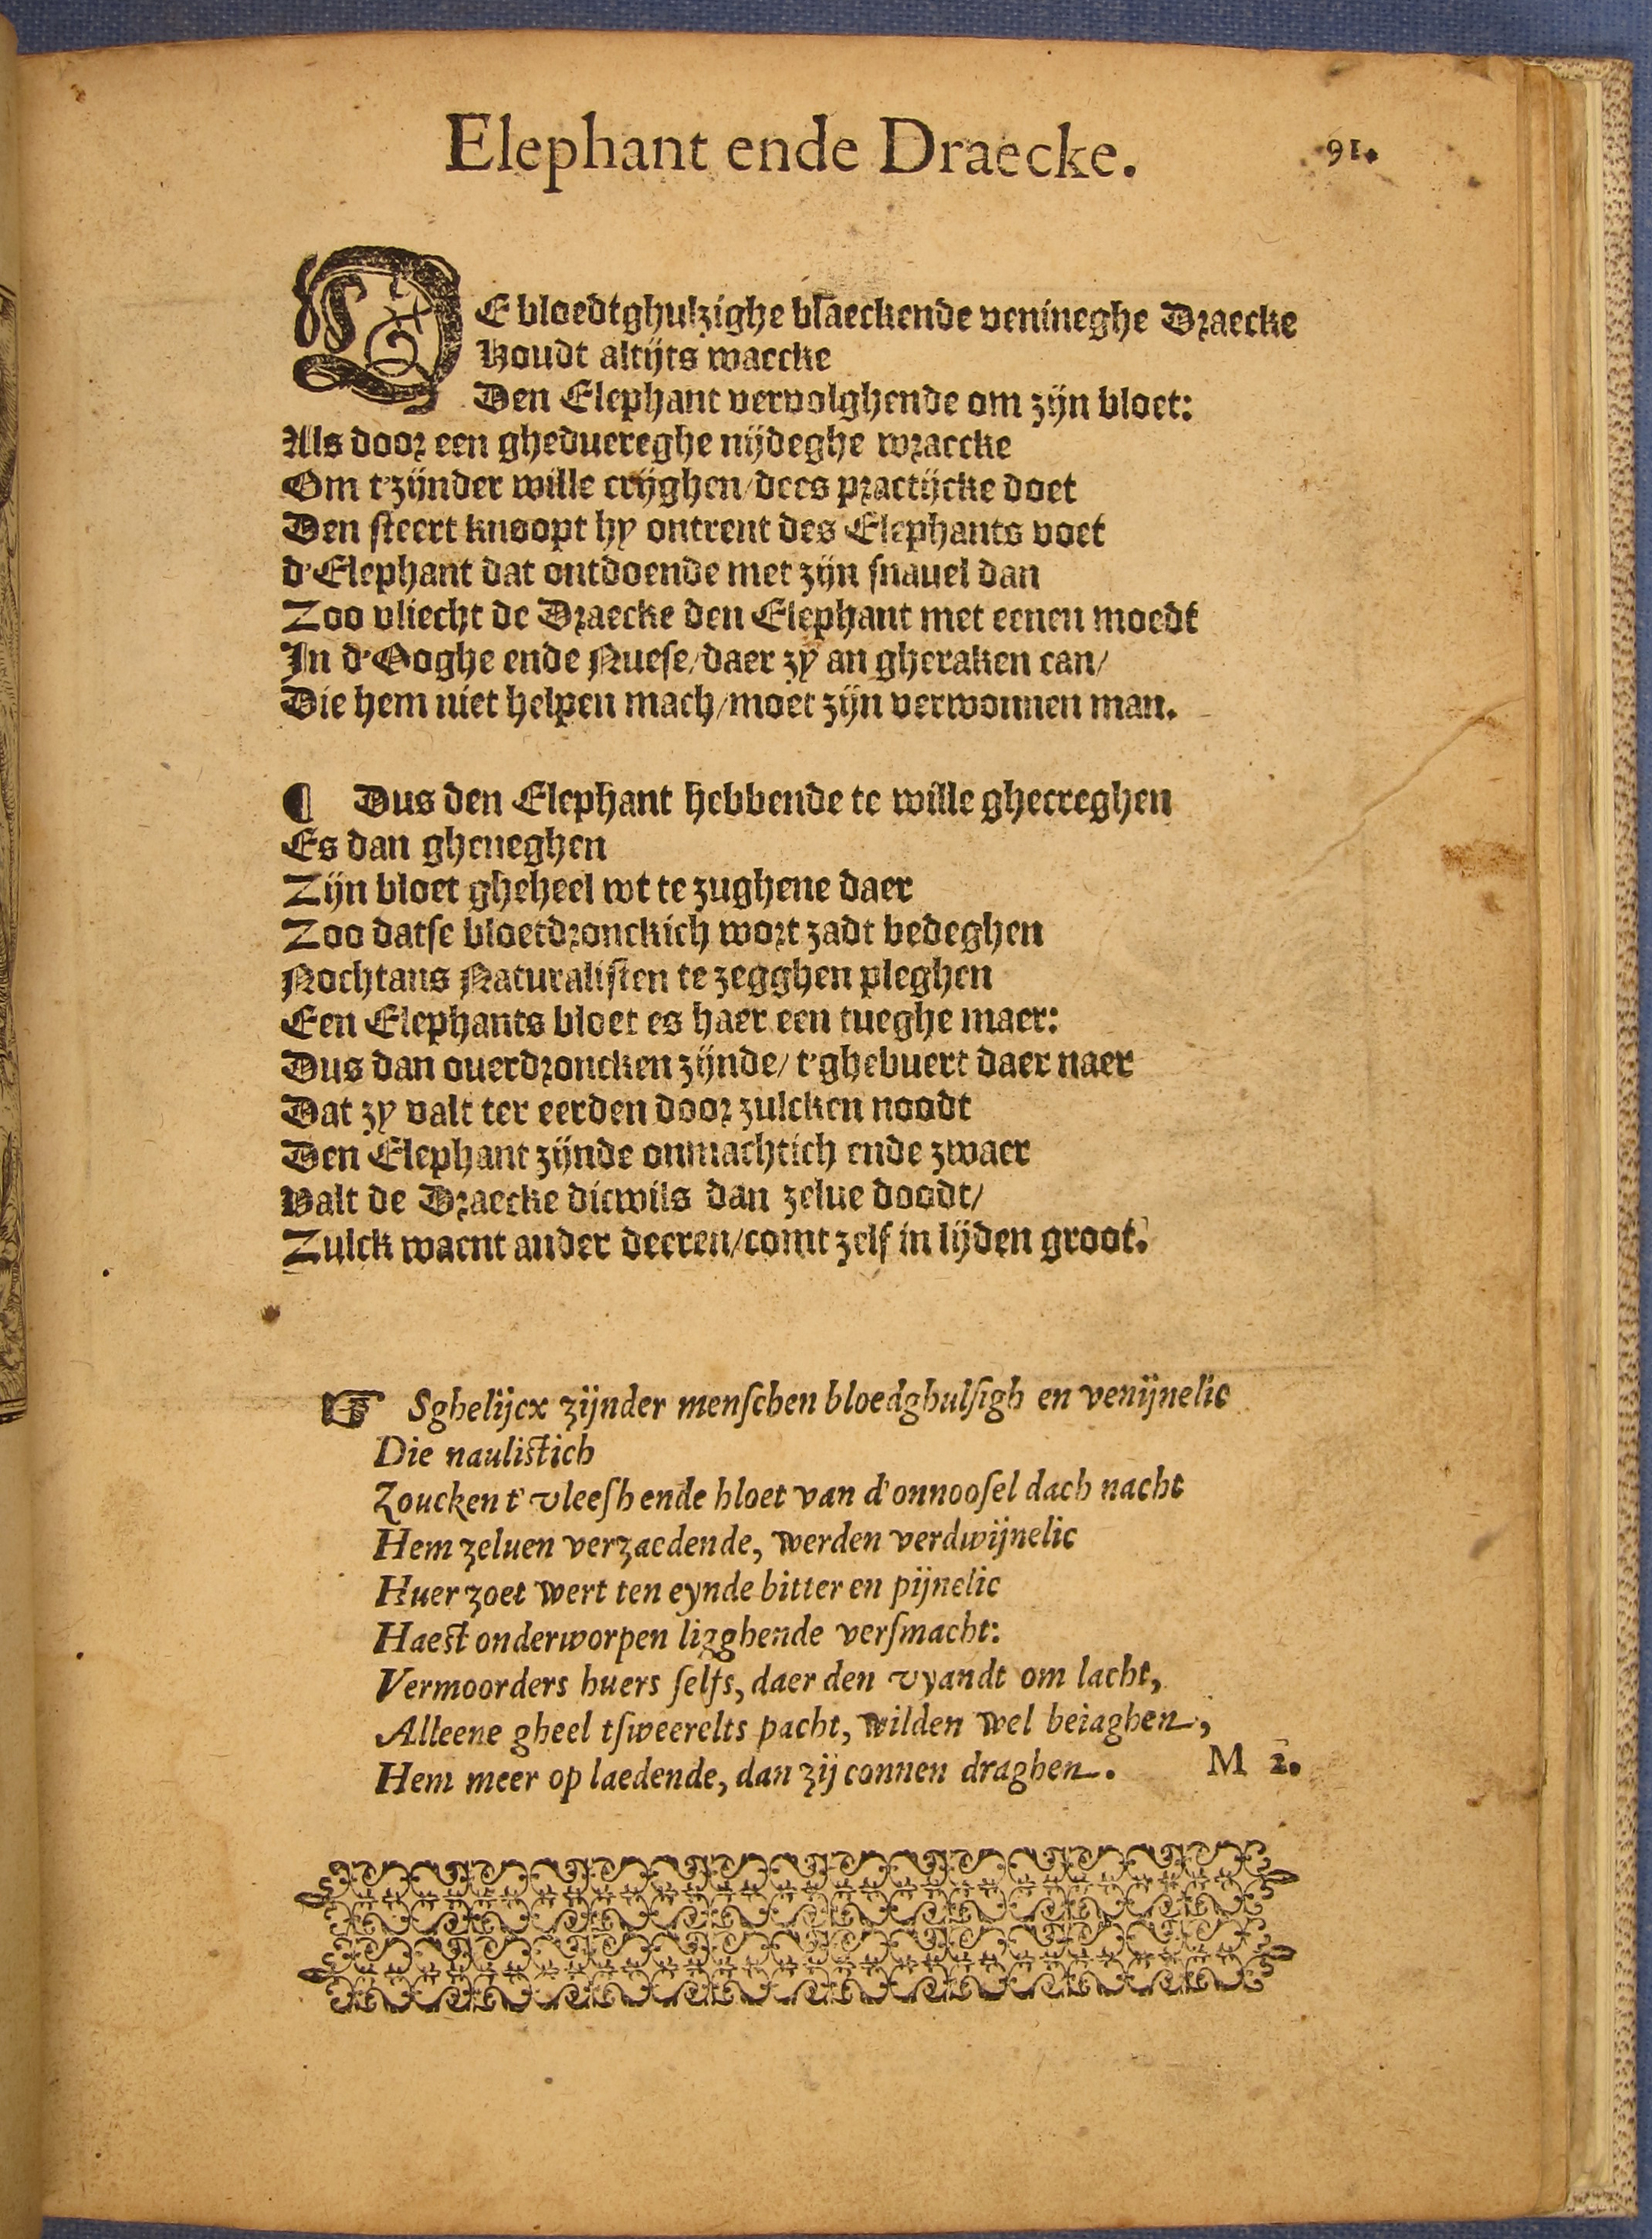 Elephant ende Draecke.
91.
DE bloedtghulzighe blaeckende venineghe Draecke
Houdt altijts waecke
Den Elephant vervolghende om zijn bloet:
Als door een gheduereghe nijdeghe wraecke
Om t'zijnder wille crijghen/dees practijcke doet
Den steert knoopt hy ontrent des Elephants voet
d'Elephant dat ontdoende met zijn snauel dan
Zoo vliecht de Draecke den Elephant met eenen moedt
In d'Ooghe ende Nuese/daer zy an gheraken can/
Die hem niet helpen mach/moet zijn verwonnen man.
¶ Dus den Elephant hebbende te wille ghecreghen
Es dan gheneghen
Zijn bloet gheheel wt te zughene daer
Zoo datse bloetdronckich wort zadt bedeghen
Nochtans Naturalisten te zegghen pleghen
Een Elephants bloet es haer een tueghe maer:
Dus dan ouerdroncken zijnde/ t'ghebuert daer naer
Dat zy valt ter eerden door zulcken noodt
Den Elephant zijnde onmachtich ende zwaer
Valt de Draecke dicwils dan zelue doodt/
Zulck waent ander deeren/comt zelf in lijden groot.
☞ Sghelijcx zijnder menschen bloedghulsigh en venijnelic
Die naulistich
Zoucken t' vleesh ende bloet van d'onnoosel dach nacht
Hem zeluen verzaedende, werden verdwijnelic
Huer zoet wert ten eynde bitter en pijnelic
Haest onderworpen ligghende versmacht:
Vermoorders huers selfs, daer den vyandt om lacht,
Alleene gheel tsweerelts pacht, wilden wel beiaghen,
Hem meer op laedende, dan zij connen draghen.
M 2.